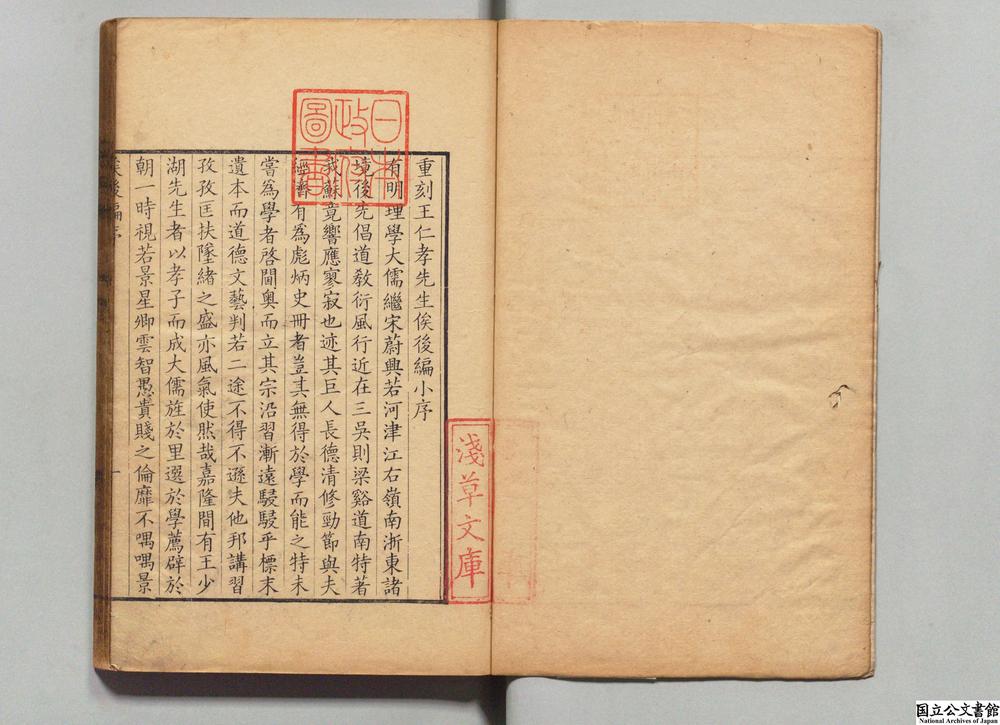 重刻王仁孝先生俟後編小序
有明理學大儒繼宋蔚興若河津江右嶺南浙東諸
境後先倡道敎衍風行近在三吳則梁谿道南特著
我蘇竟響應寥寂也迹其巨人長德清修勁節與夫
經書有為彪炳史冊者豈其無得於學而能之特未
嘗為學者啓閫奧而立其宗沿習漸遠駸駸乎標末
遺本而道德文藝判若二途不得不遜夫他邦講習
孜孜匡扶墜緒之盛亦風氣使然哉嘉隆間有王少
湖先生者以孝子而成大儒旌於里選於學薦辟於
朝一時視若景星卿雲智愚貴賤之倫靡不喁喁景
俟後編序
一
日本政府圖書
淺草文庫
国立公文書館
National Archives of Japan